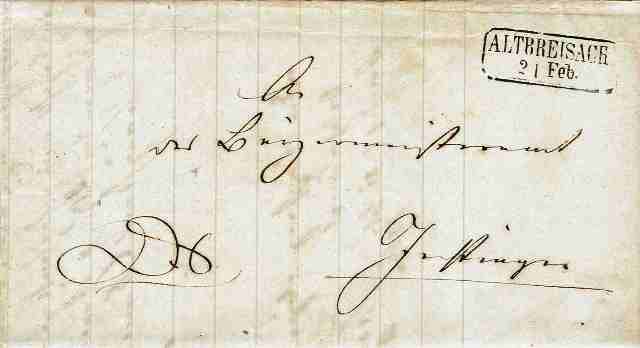 ALTBREISACH
21 Feb.
An
das Bürgermeisteramt
DS